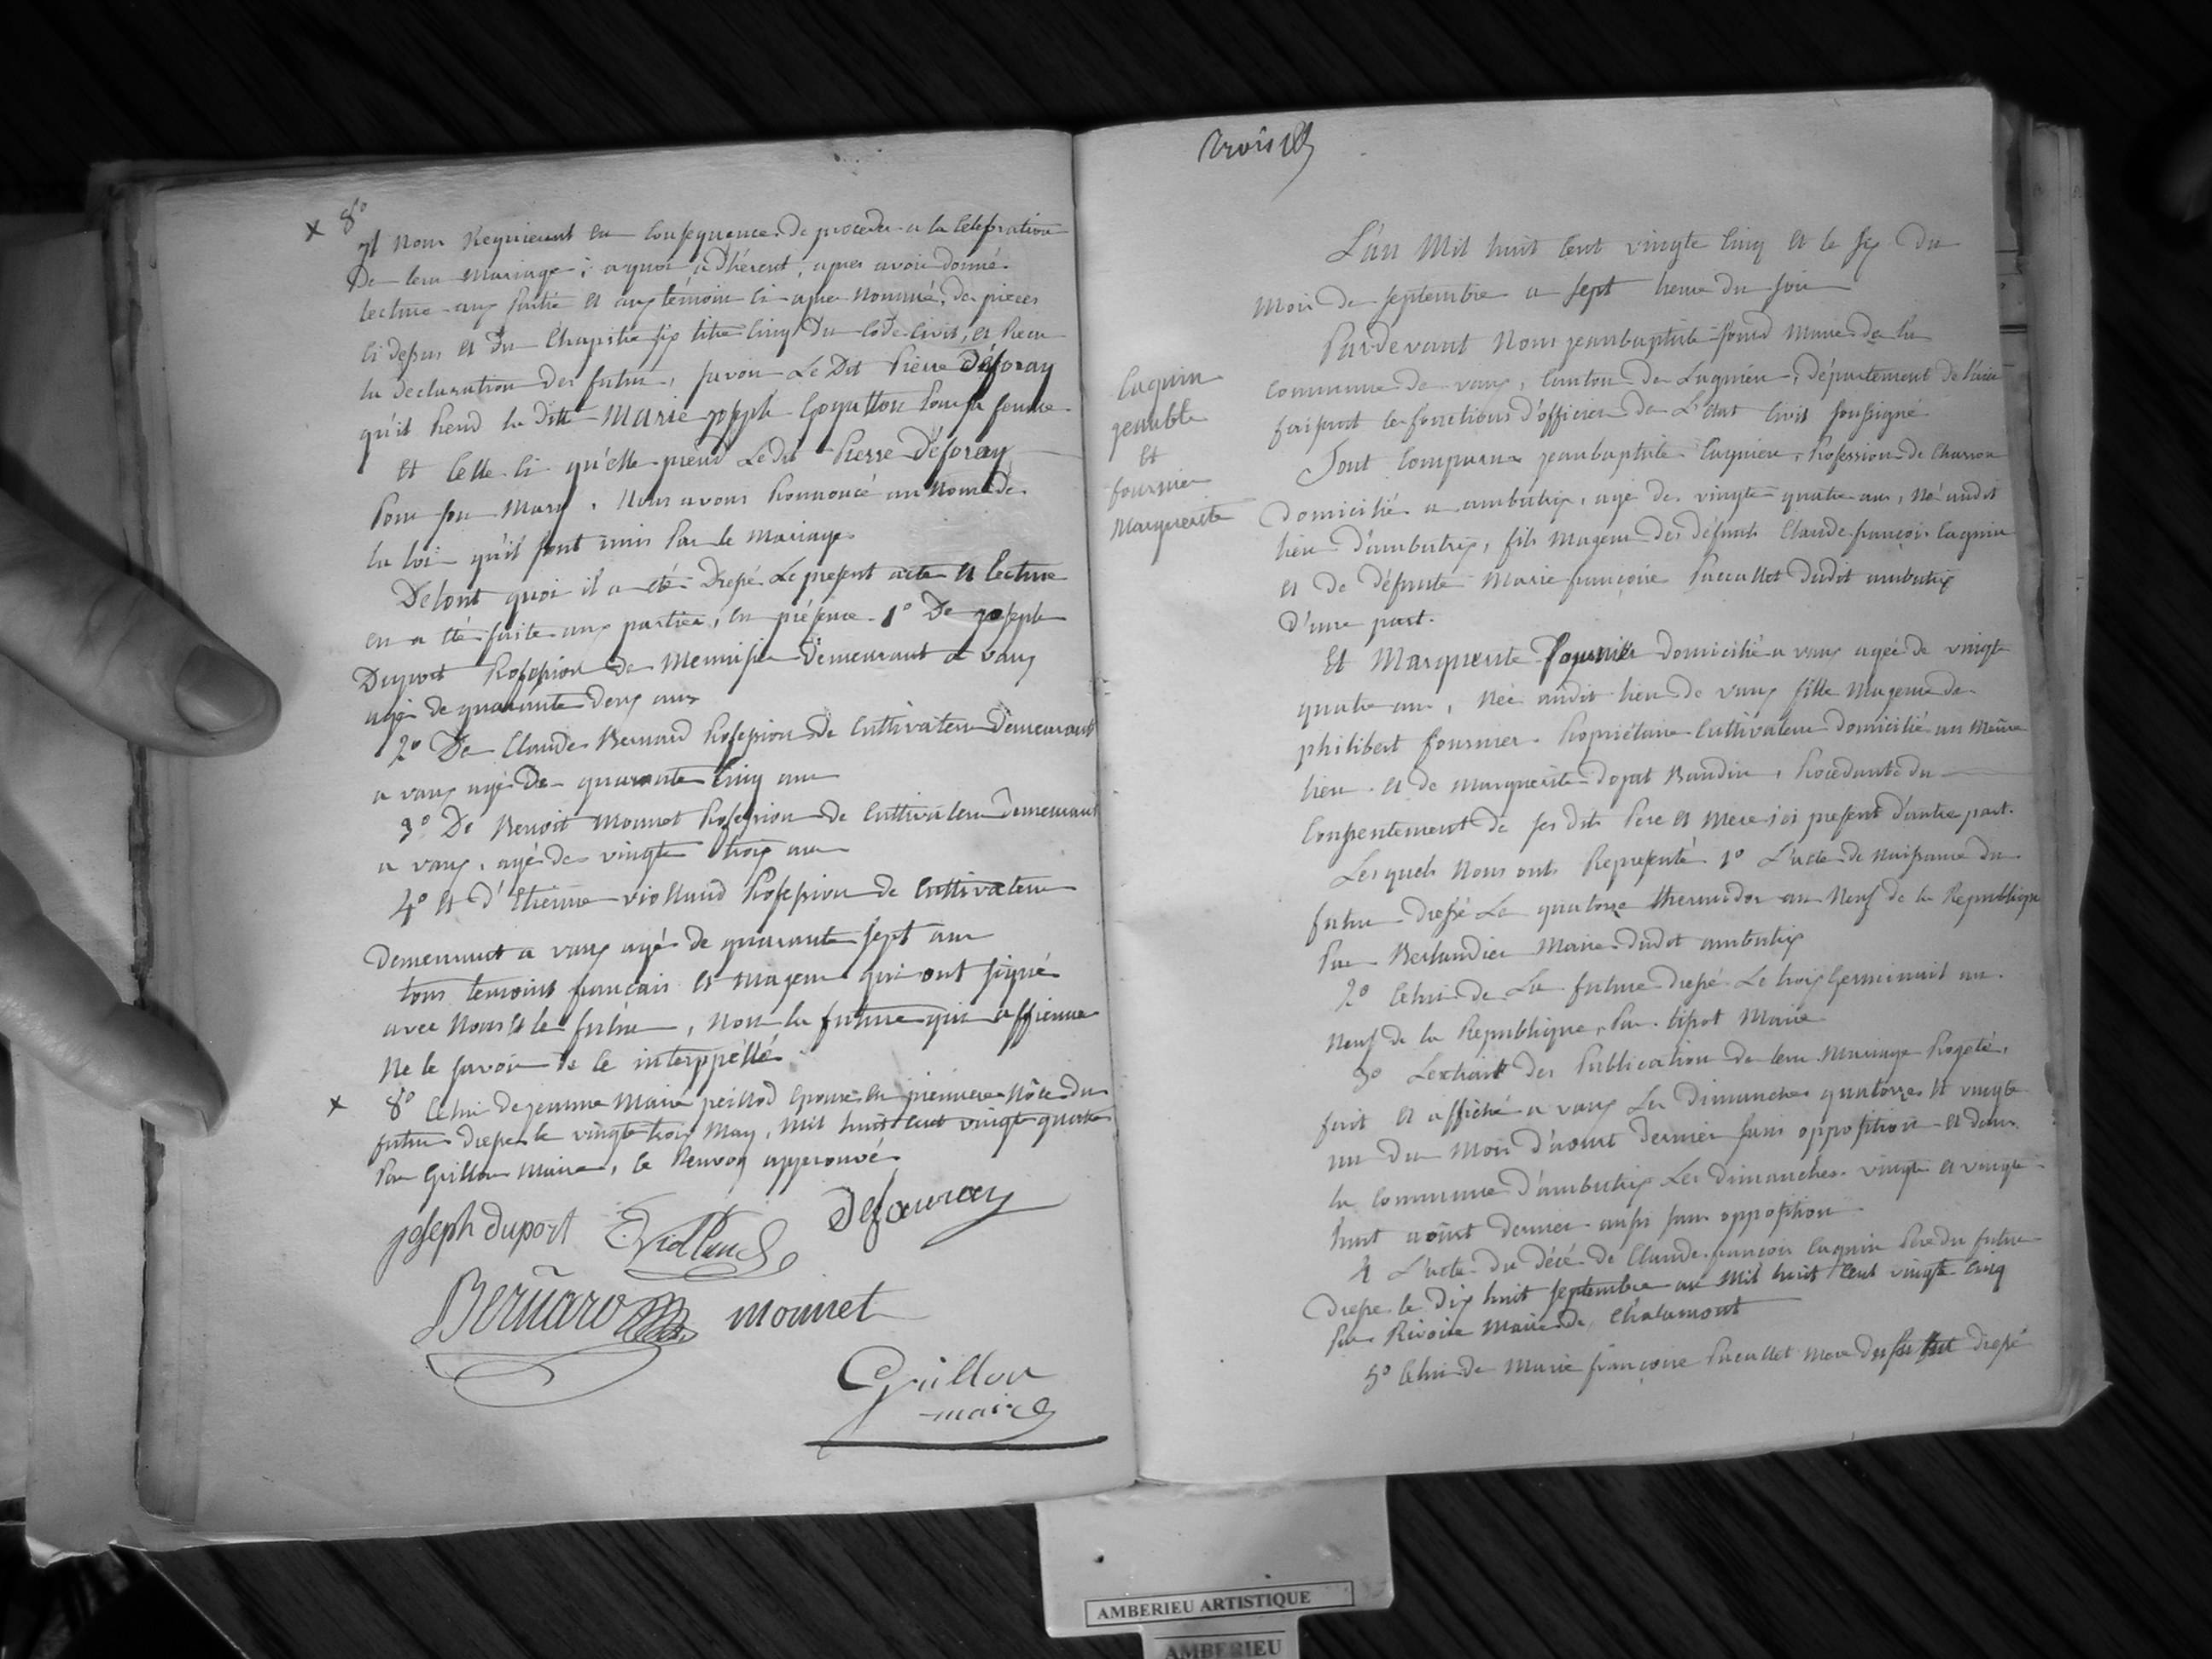 x 8°
Il Nous Requierent en Consequence de proceder a la Celebration
De leur Mariage ; a quoi adhérent, apres avoir donné
lecture aux Partie et aux témoin ci apres Nommé, de pieces
Ci dessus et du Chapitre six titre Cinq Du Code Civil, et Recu
la declaration des futur, savoir Le Dit Pierre Déforay
qu'il Prend la Ditte Marie joseph Goyatton Pour sa femme
Et Celle Ci qu'elle prend Le dit Pierre Déforay
Pour son Mary. Nous avons Prononcé au Nom de
la loi qu'il sont unis Par le Mariage
De tout quoi il a été Dressé Le present acte et lecture
en a été faite aux parties, en présence 1° De joseph
Duport Profession de Menuisier Demeurant a vaux
agé de quarante deux ans
2° De Claude Bernard Profession de Cultivateur Demeurant
a vaux agé De quarante Cinq ans
3° De Benoit Monnet Profession de Cultivateur Demeurant
a vaux, agé de vingte trois ans
4° Et d'Etienne viollaud Profession de Cultivateur
Demeurant a vaux agé de quarante sept ans
tous temoins francais et Mageur qui ont signé
avec Nous et le futur, Non la future qui a affirmé
Ne le savoir de ce interppéllé
x 8° Celui de jeanne Marie peillod Epouse en premiere Nôce du
futur dressé le vingte trois May, Mil huit Cent vingte quatre
Par Guillon Maire, le Renvoy approuvé
joseph duport E. Viollaud defauray
Bernard monnet
Guillon
maire
trois
L'an Mil huit Cent vingte Cinq Et le six Du
Mois de Septembre a sept heure du soir
Pardevant Nous jeanbaptiste Maire de la
Commune de vaux, Canton de Lagnieu, département de l'ain
faisant les fonctions d'officier de L'etat Civil soussigné
Cagnin
jeanbte
Et
fournier
Marguerite
Sont Comparus jeanbaptiste Cagnieu, Profession de Charron
Domicilié a ambutrix, agé de vingte quatre ans, Né audit
lieu d'ambutrix, fils Mageur des défunts Claude françois Cagnin
et de défunte Marie françoise Pacallet dudit ambutrix
D'une part.
Et Marguerite Fournier domicilié a vaux agée de vingte
quatre ans, Née audit lieu de vaux fille Mageure de
philibert fournier Propriétaire Cultivateur domicilié au Même
lieu et de Marguerite Baudin, Procedante du
Consentement de ses dits Pere et Mere ici present d'autre part.
Les quels Nous onts Representé 1° L'acte de Naissance du
futur dressé Le quatorze thermidor an Neuf de la Republique
Par Berlandier Maire dudit ambutrix
2° Celui de La future dressé Le trois Germinal an
Neuf de la Republique, Par Maire
3° Lextrait des Publication de leur Mariage Projeté,
fait et affiché a vaux Les Dimanches quatorze et vingte
un du Mois d'aoust dernier sans opposition et dans
la Commune d'ambutrix Les Dimanches vingte et vingte
huit aoûst dernier aussi sans opposition
4 L'acte du décé de Claude françois Cagnin Pere du futur
Dressé le Dix huit septembre an Mil huit Cent vingte Cinq
Par Rivoire Maire de Chalamont
5° Celui de Marie françoise Pacallet Mere du futur dressé
AMBERIEU ARTISTIQUE
AMBERIEU